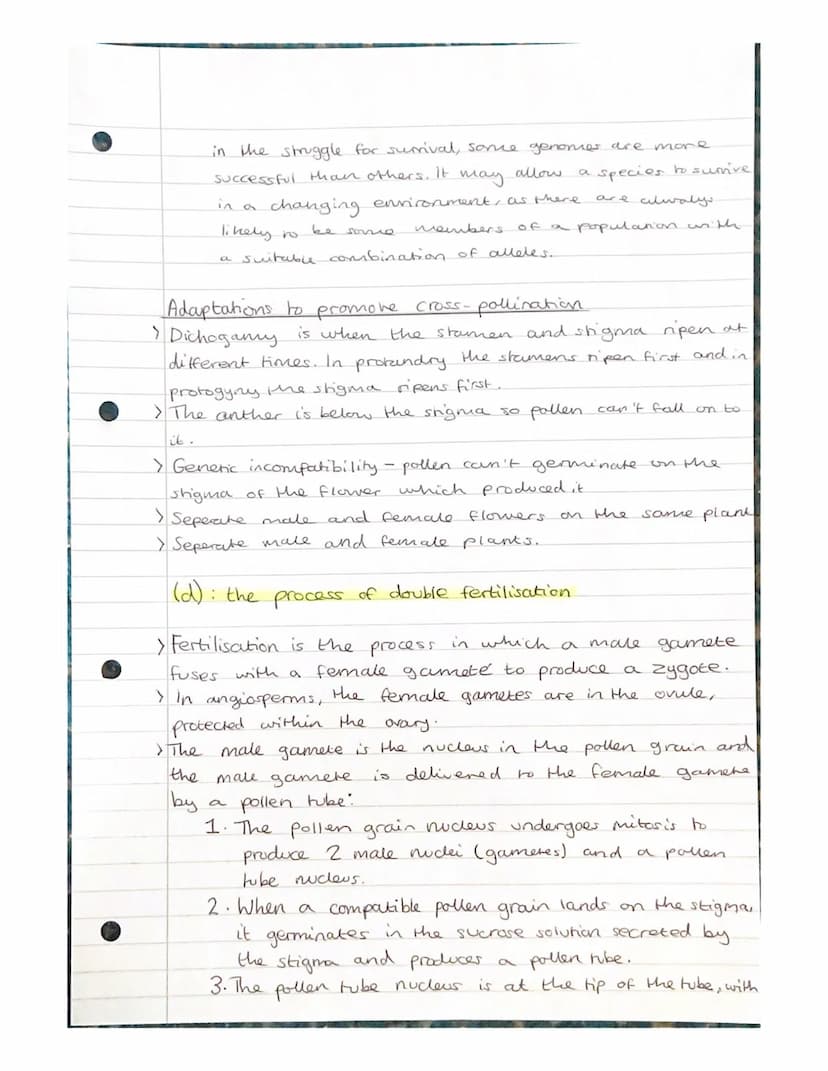 in the struggle for survival, some genomes are more
successful than others. It may allow a species to survive
in a changing environment, as there are always
likely to be some members of a population with
a suitable combination of alleles.
Adaptations to promote cross-pollination
> Dichogamy is when the stamen and stigma ripen at
different times. In protandry the stamens ripen first and in
protogyny the stigma ripens first.
> The anther is below the stigma so pollen can't fall on to
it.
> Genetic incompatibility - pollen can't germinate on the
stigma of the flower which produced it
> Seperate male and female flowers on the same plant
> Seperate male and female plants.
(d): the process of double fertilisation
> Fertilisation is the process in which a male gamete
fuses with a female gamete to produce a zygote.
> In angiosperms, the female gametes are in the ovule,
protected within the ovary.
> The male gamete is the nucleus in the pollen grain and
the male gamete is delivered to the female gamete
by a pollen tube:
1. The pollen grain nucleus undergoes mitosis to
produce 2 male nuclei (gametes) and a pollen
tube nucleus.
2. When a compatible pollen grain lands on the stigma,
it germinates in the sucrose solution secreted by
the stigma and produces a pollen tube.
3. The pollen tube nucleus is at the tip of the tube, with